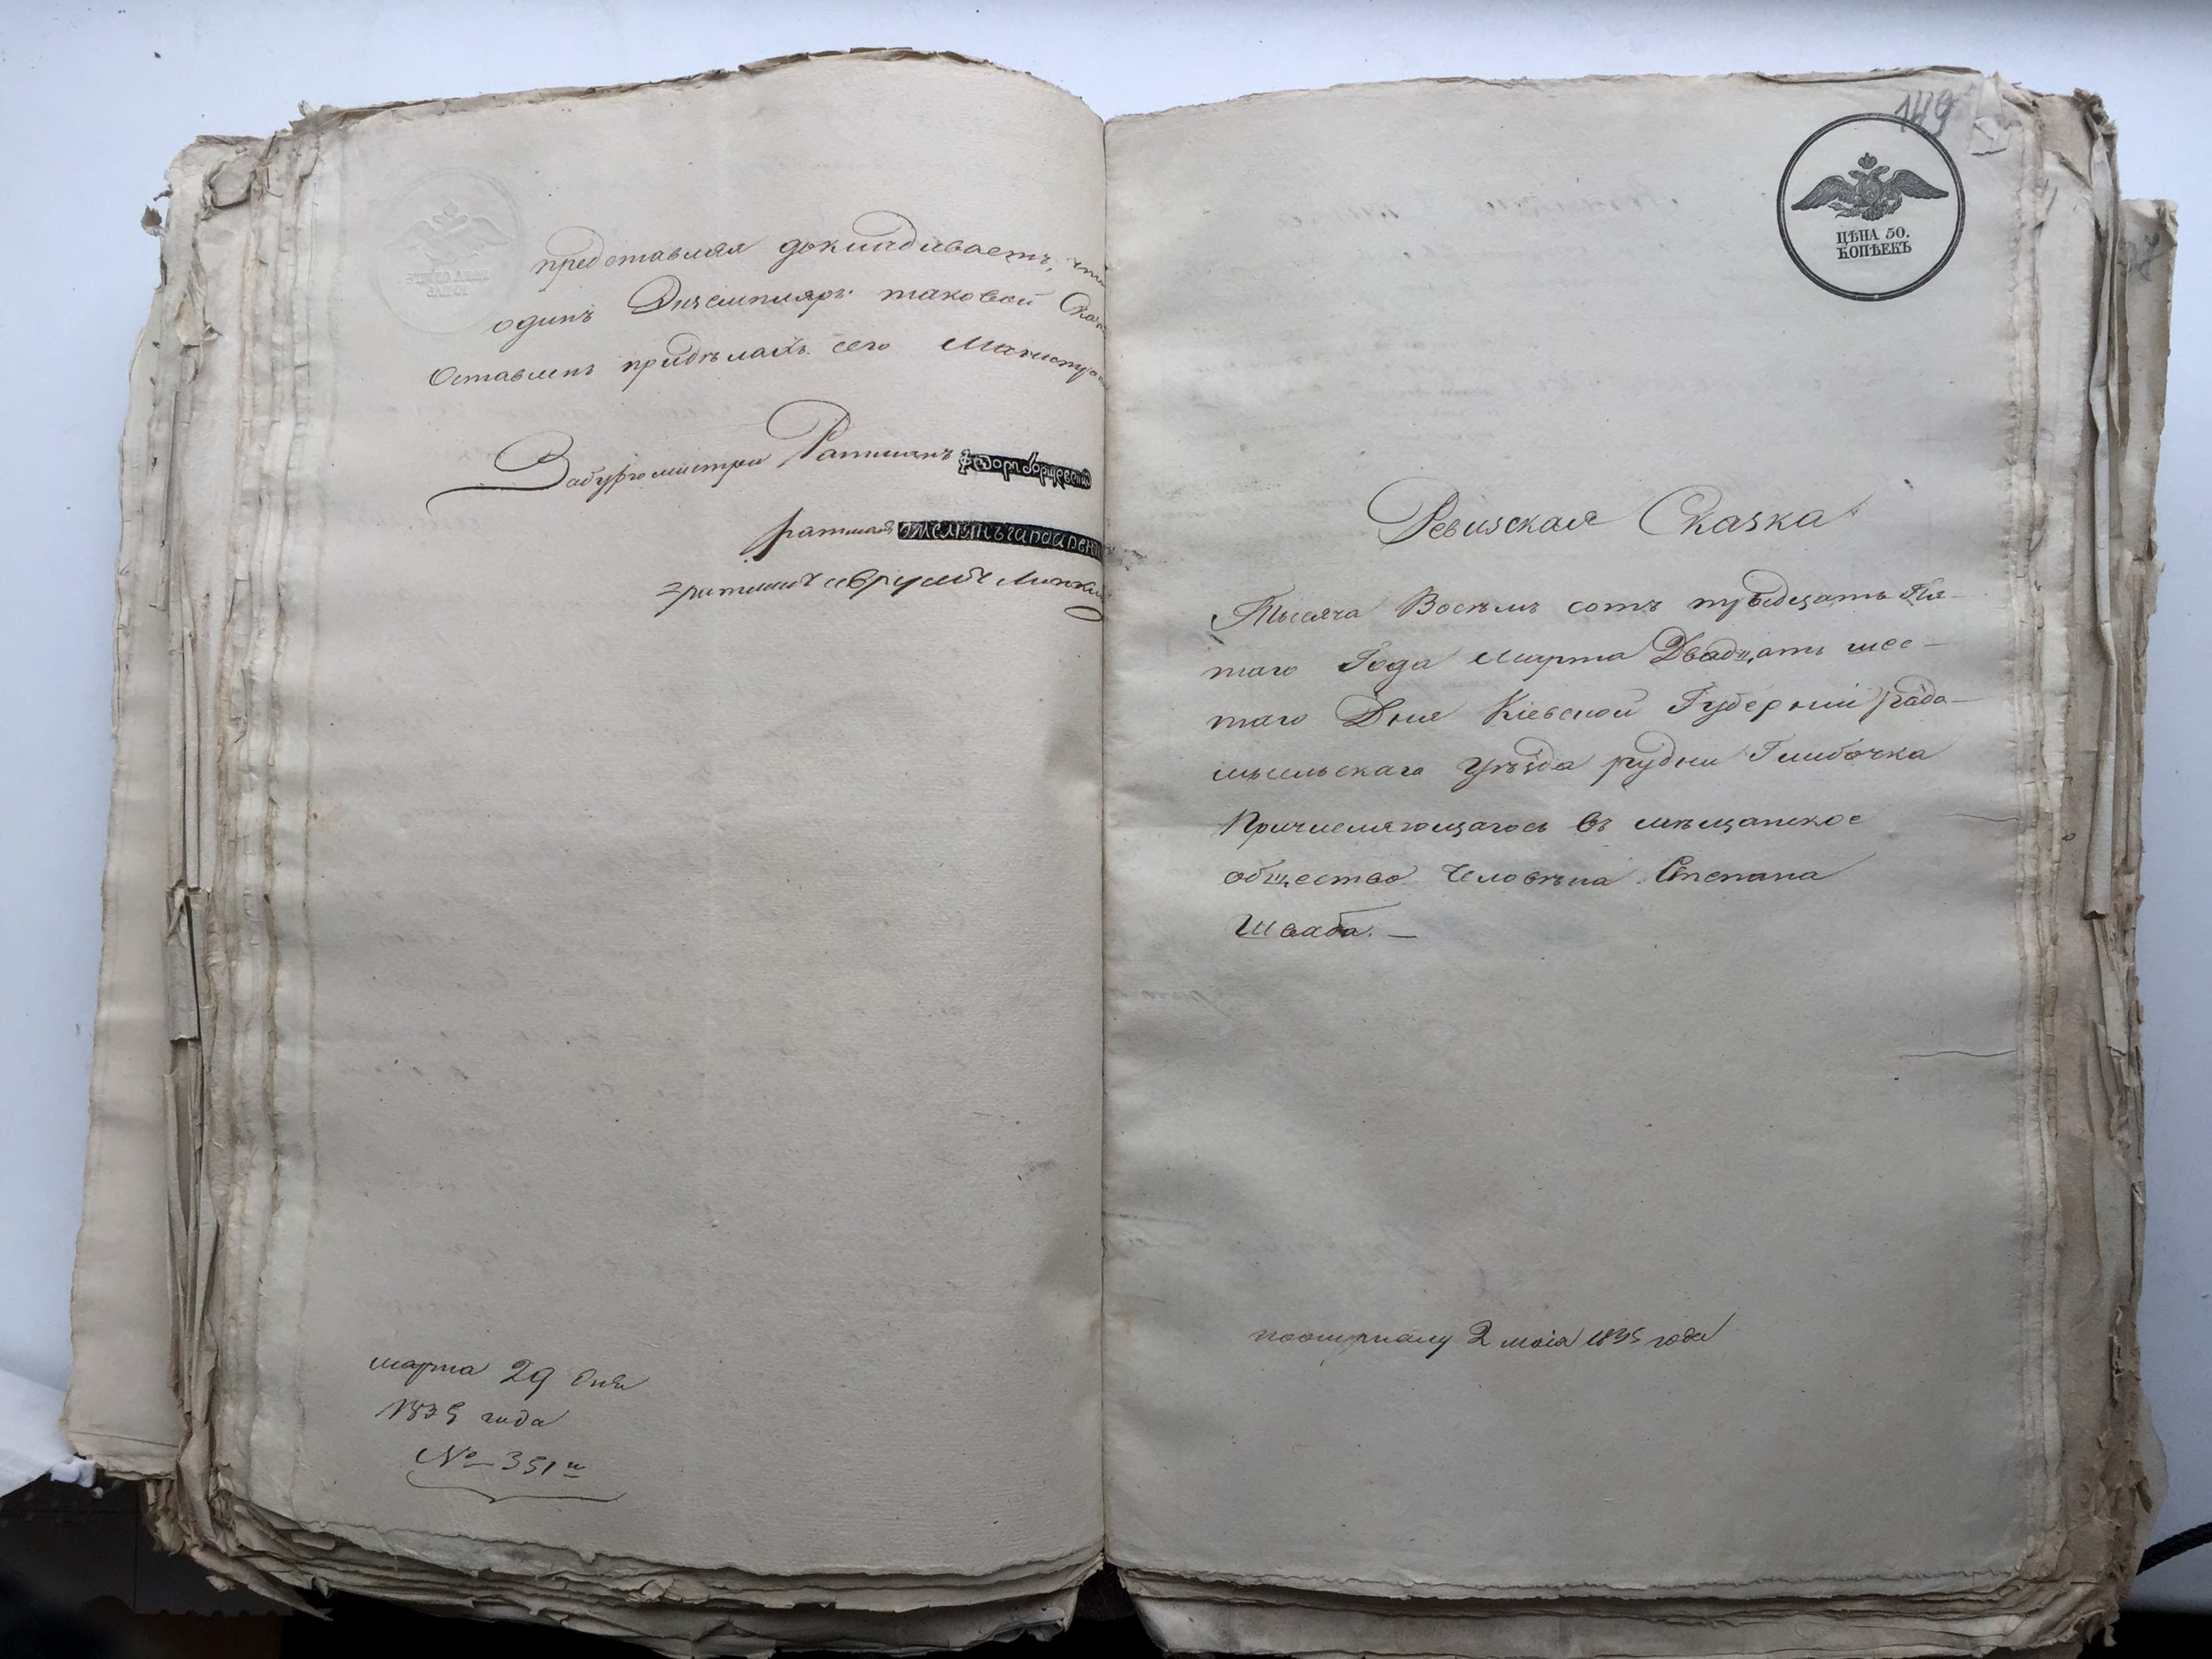 представляя докладываетъ, что
одинъ Экземпляръ таковой Сказ
Оставленъ придѣлахъ сего Магистра
Забургомистра Ратманъ Федоръ Борщевский
ратманъ
ратманъ
марта 29 дня
1835 года
№ 351
149
ЦѢНА 50.
КОПѢЕКЪ
Ревизская Сказка
Тысяча Восемъ сотъ тридцать Пя-
таго Года Марта Двадцать шес-
таго Дня Кіевской Губерніи радо-
мысльскаго уѣзда рудни Глибочка
Причисляющагося въ мѣщанское
общество Человѣка Степана
Шваба. —
2 маія 1835 года